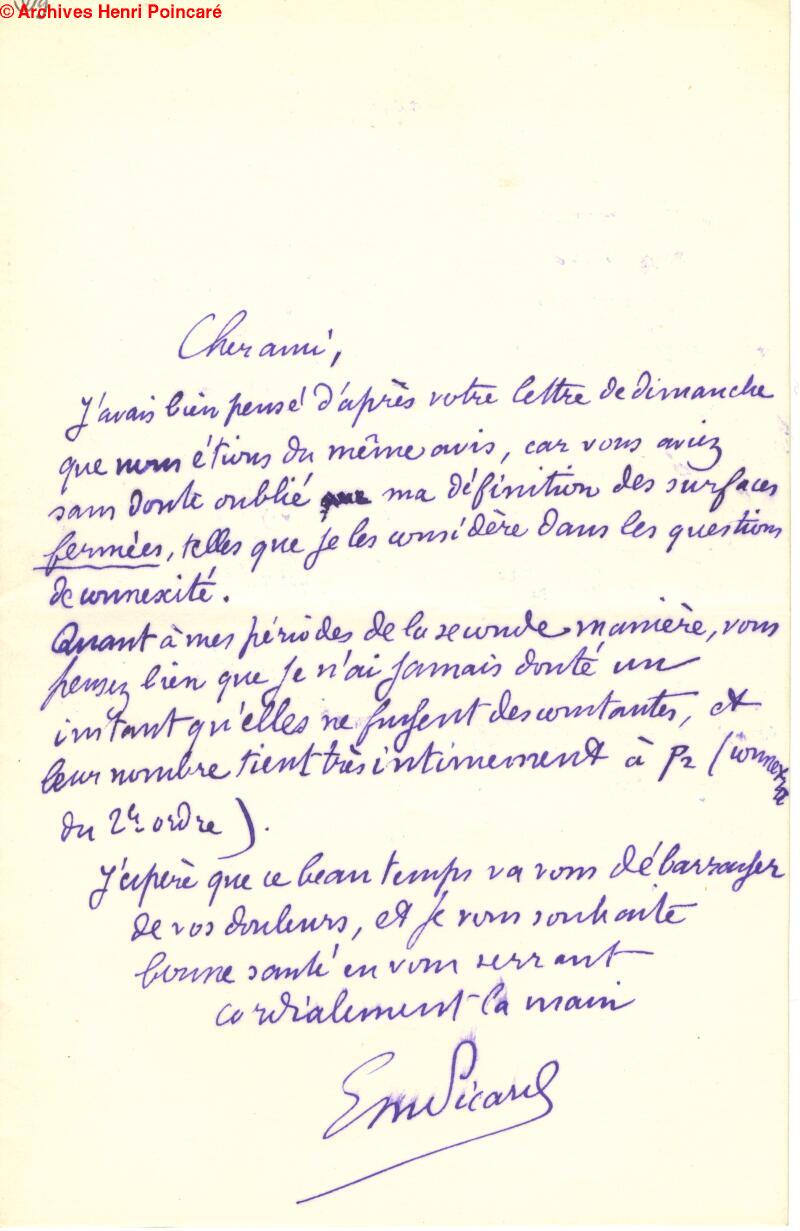 © Archives Henri Poincaré
Cher ami,
J'avais bien pensé d'après votre lettre de dimanche
que nous étions du même avis, car vous aviez
sans doute oublié que ma définition des surfaces
fermées, telles que je les considère dans les questions
de connexité.
Quant à mes périodes de la seconde manière, vous
pensez bien que je n'ai jamais douté un
instant qu'elles ne fussent des constantes, et
leur nombre tient très intimement à p2 (connexité
du 2e ordre).
J'espère que ce beau temps va vous débarrasser
de vos douleurs, et je vous souhaite
bonne santé en vous serrant
cordialement la main
Em Picard